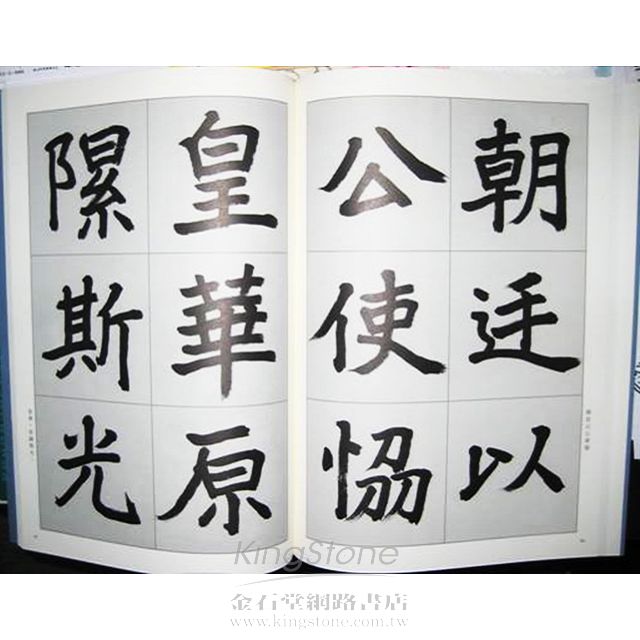 朝廷以
公使恊
皇華原
隰斯光
KingStone
金石堂網路書店
www.kingstone.com.tw